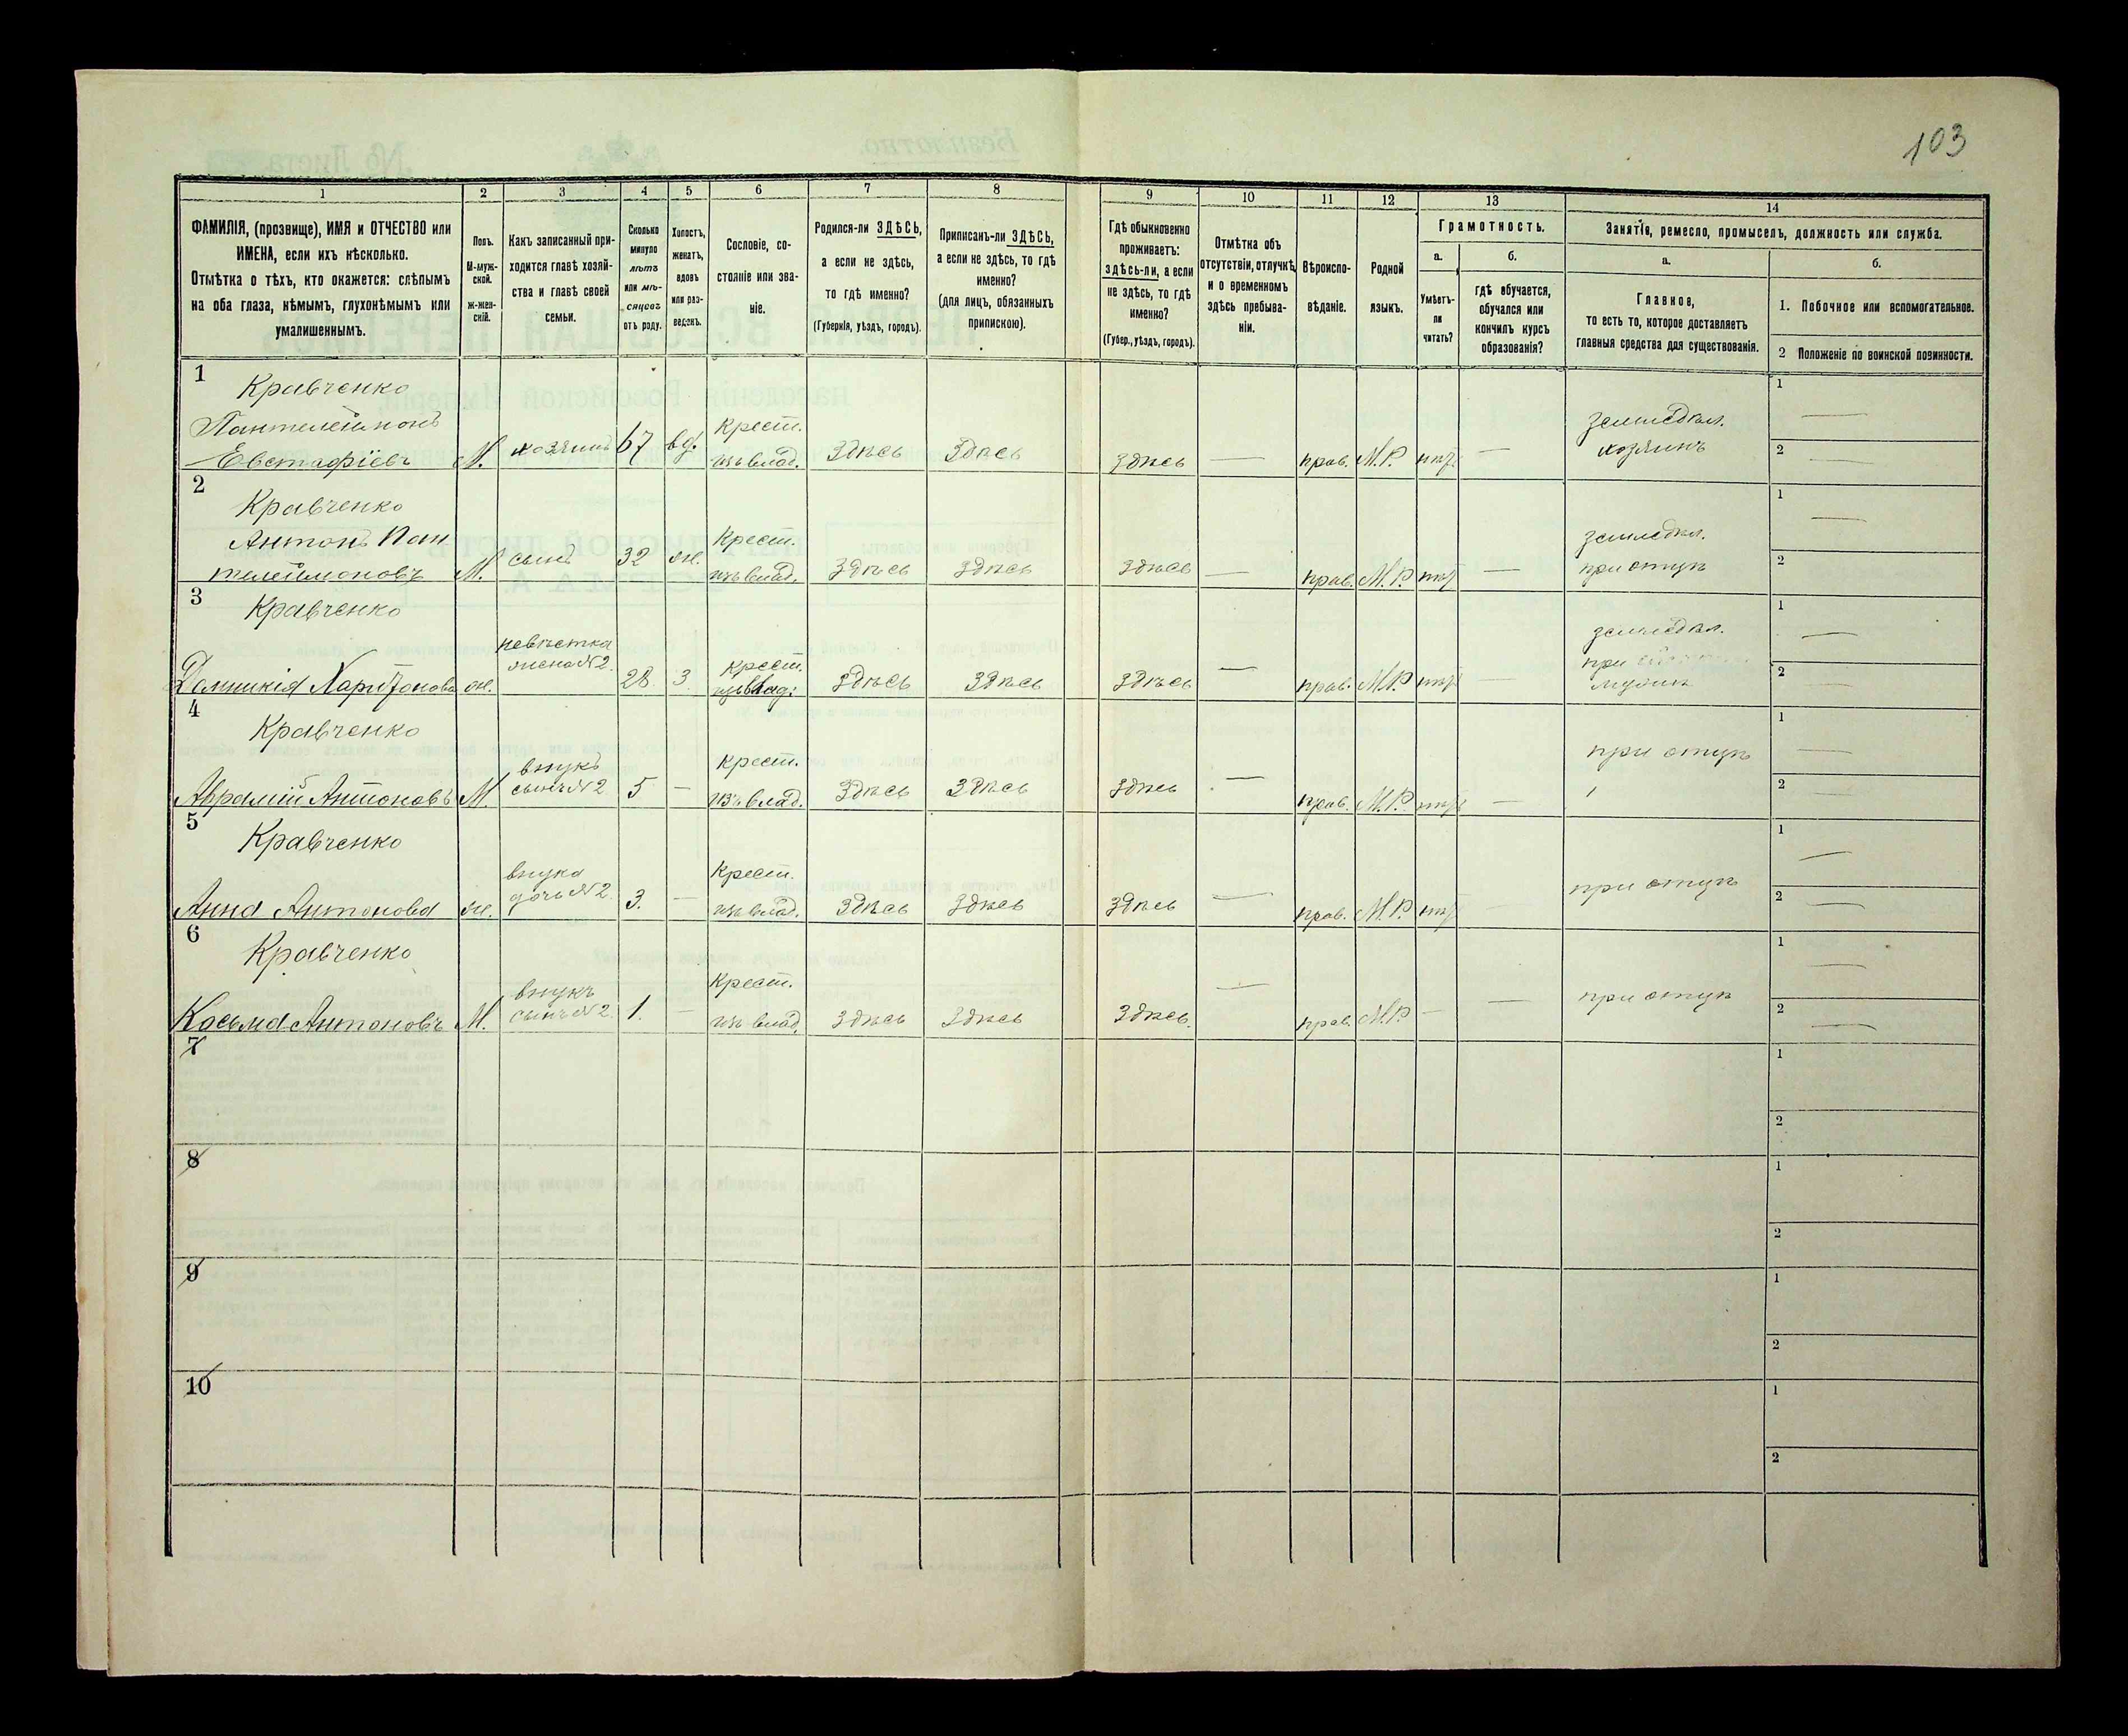 103
1 2 3 4 5 6 7 8 9 10 11 12 13 14
ФАМИЛІЯ, (прозвище), ИМЯ и ОТЧЕСТВО или
ИМЕНА, если ихъ нѣсколько.
Отмѣтка о тѣхъ, кто окажется: слѣпымъ
на оба глаза, нѣмымъ, глухонѣмымъ или
умалишеннымъ.
Полъ.
М-муж-
ской.
ж-жен-
скій.
Какъ записанный при-
ходится главѣ хозяй-
ства и главѣ своей
семьи.
Сколько
минуло
лѣтъ
или мѣ-
сяцевъ
отъ роду.
Холостъ,
женатъ,
вдовъ
или раз-
веденъ.
Сословіе, со-
стояніе или зва-
ніе.
Родился-ли ЗДѢСЬ,
а если не здѣсь,
то гдѣ именно?
(Губернія, уѣздъ, городъ).
Приписанъ-ли ЗДѢСЬ,
а если не здѣсь, то гдѣ
именно?
(для лицъ, обязанныхъ
припискою).
Гдѣ обыкновенно
проживаетъ:
здѣсь-ли, а если
не здѣсь, то гдѣ
именно?
(Губер., уѣздъ, городъ).
Отмѣтка объ
отсутствіи, отлучкѣ
и о временномъ
здѣсь пребыва-
ніи.
Вѣроиспо-
вѣданіе.
Родной
языкъ.
Грамотность.
а.
Умѣетъ-
ли
читать?
б.
гдѣ обучается,
обучался или
кончилъ курсъ
образованія?
Занятія, ремесло, промыселъ, должность или служба.
а.
Главное,
то есть то, которое доставляетъ
главныя средства для существованія.
б.
1. Побочное или вспомогательное.
2 Положеніе по воинской повинности.
1
Кравченко
Пантелеймонъ
Евстафіевъ М. хозяинъ 67 вд. Крест. изъ влад. Здѣсь Здѣсь здѣсь — прав. М.Р. — земледѣл. хозяинъ
1 —
2 —
2
Кравченко
Антонъ Пан
телеймоновъ М. сынъ 32 ж. Крест. изъ влад. Здѣсь Здѣсь здѣсь — прав. М.Р. — земледѣл. при отцѣ
1 —
2 —
3
Кравченко
Домникія Харитонова ж. невѣстка жена №2 28 з. Крест. изъ влад. Здѣсь Здѣсь здѣсь — прав. М.Р. — земледѣл. при
1 —
2 —
4
Кравченко
Аврамій Антоновъ М. внукъ сынъ №2 5 — Крест. изъ влад. Здѣсь Здѣсь здѣсь — прав. М.Р. — при отцѣ
1 —
2 —
5
Кравченко
Анна Антонова ж. внука дочь №2 3. — Крест. изъ влад. Здѣсь Здѣсь здѣсь — прав. М.Р. при отцѣ
1 —
2 —
6
Кравченко
Косьма Антоновъ М. внукъ сынъ №2 1. — Крест. изъ влад. Здѣсь Здѣсь Здѣсь. — прав. М.Р. — — при отцѣ
1 —
2 —
7
1
2
8
1
2
9
1
2
10
1
2